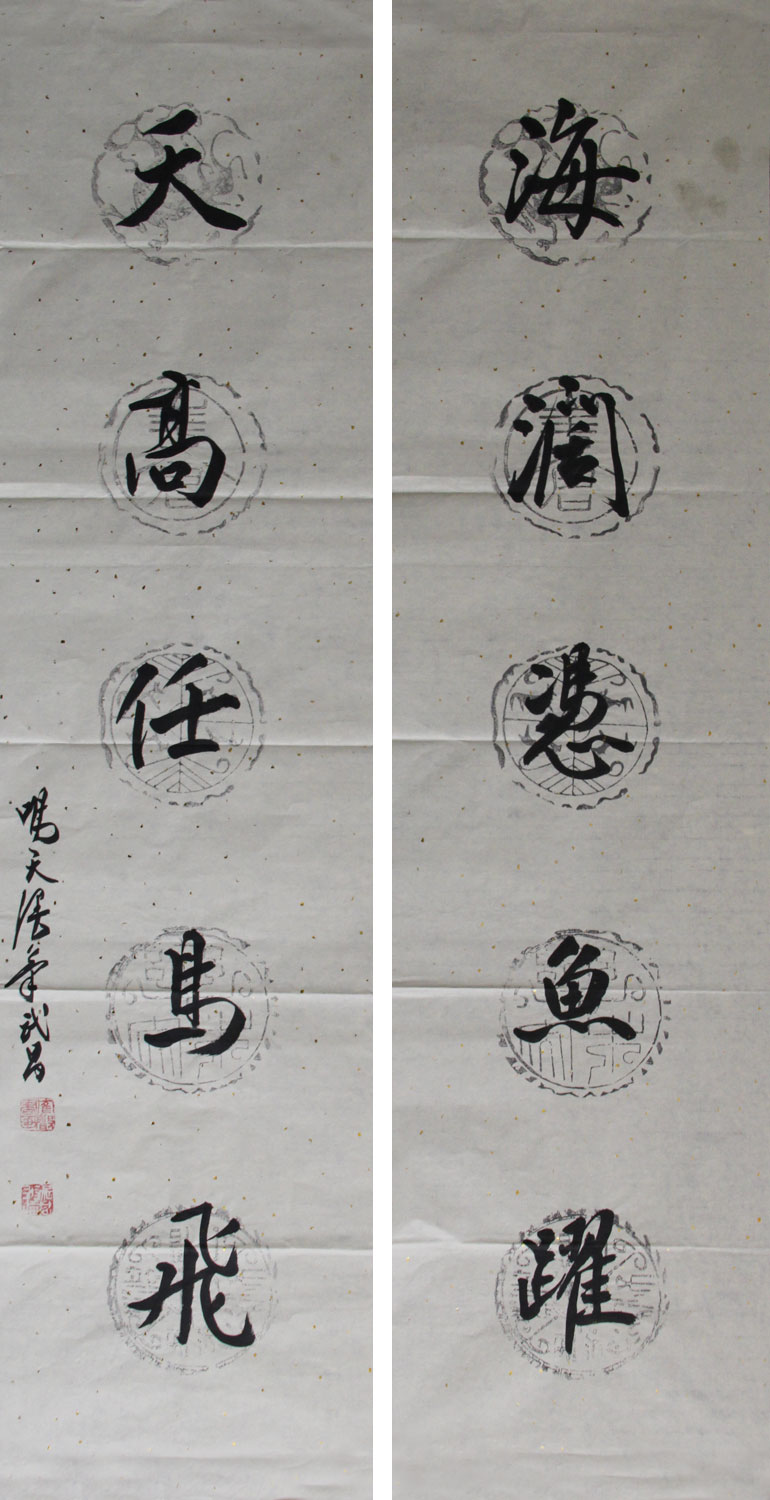 海濶憑魚躍
天髙任鳥飛
鳴天筆武昌